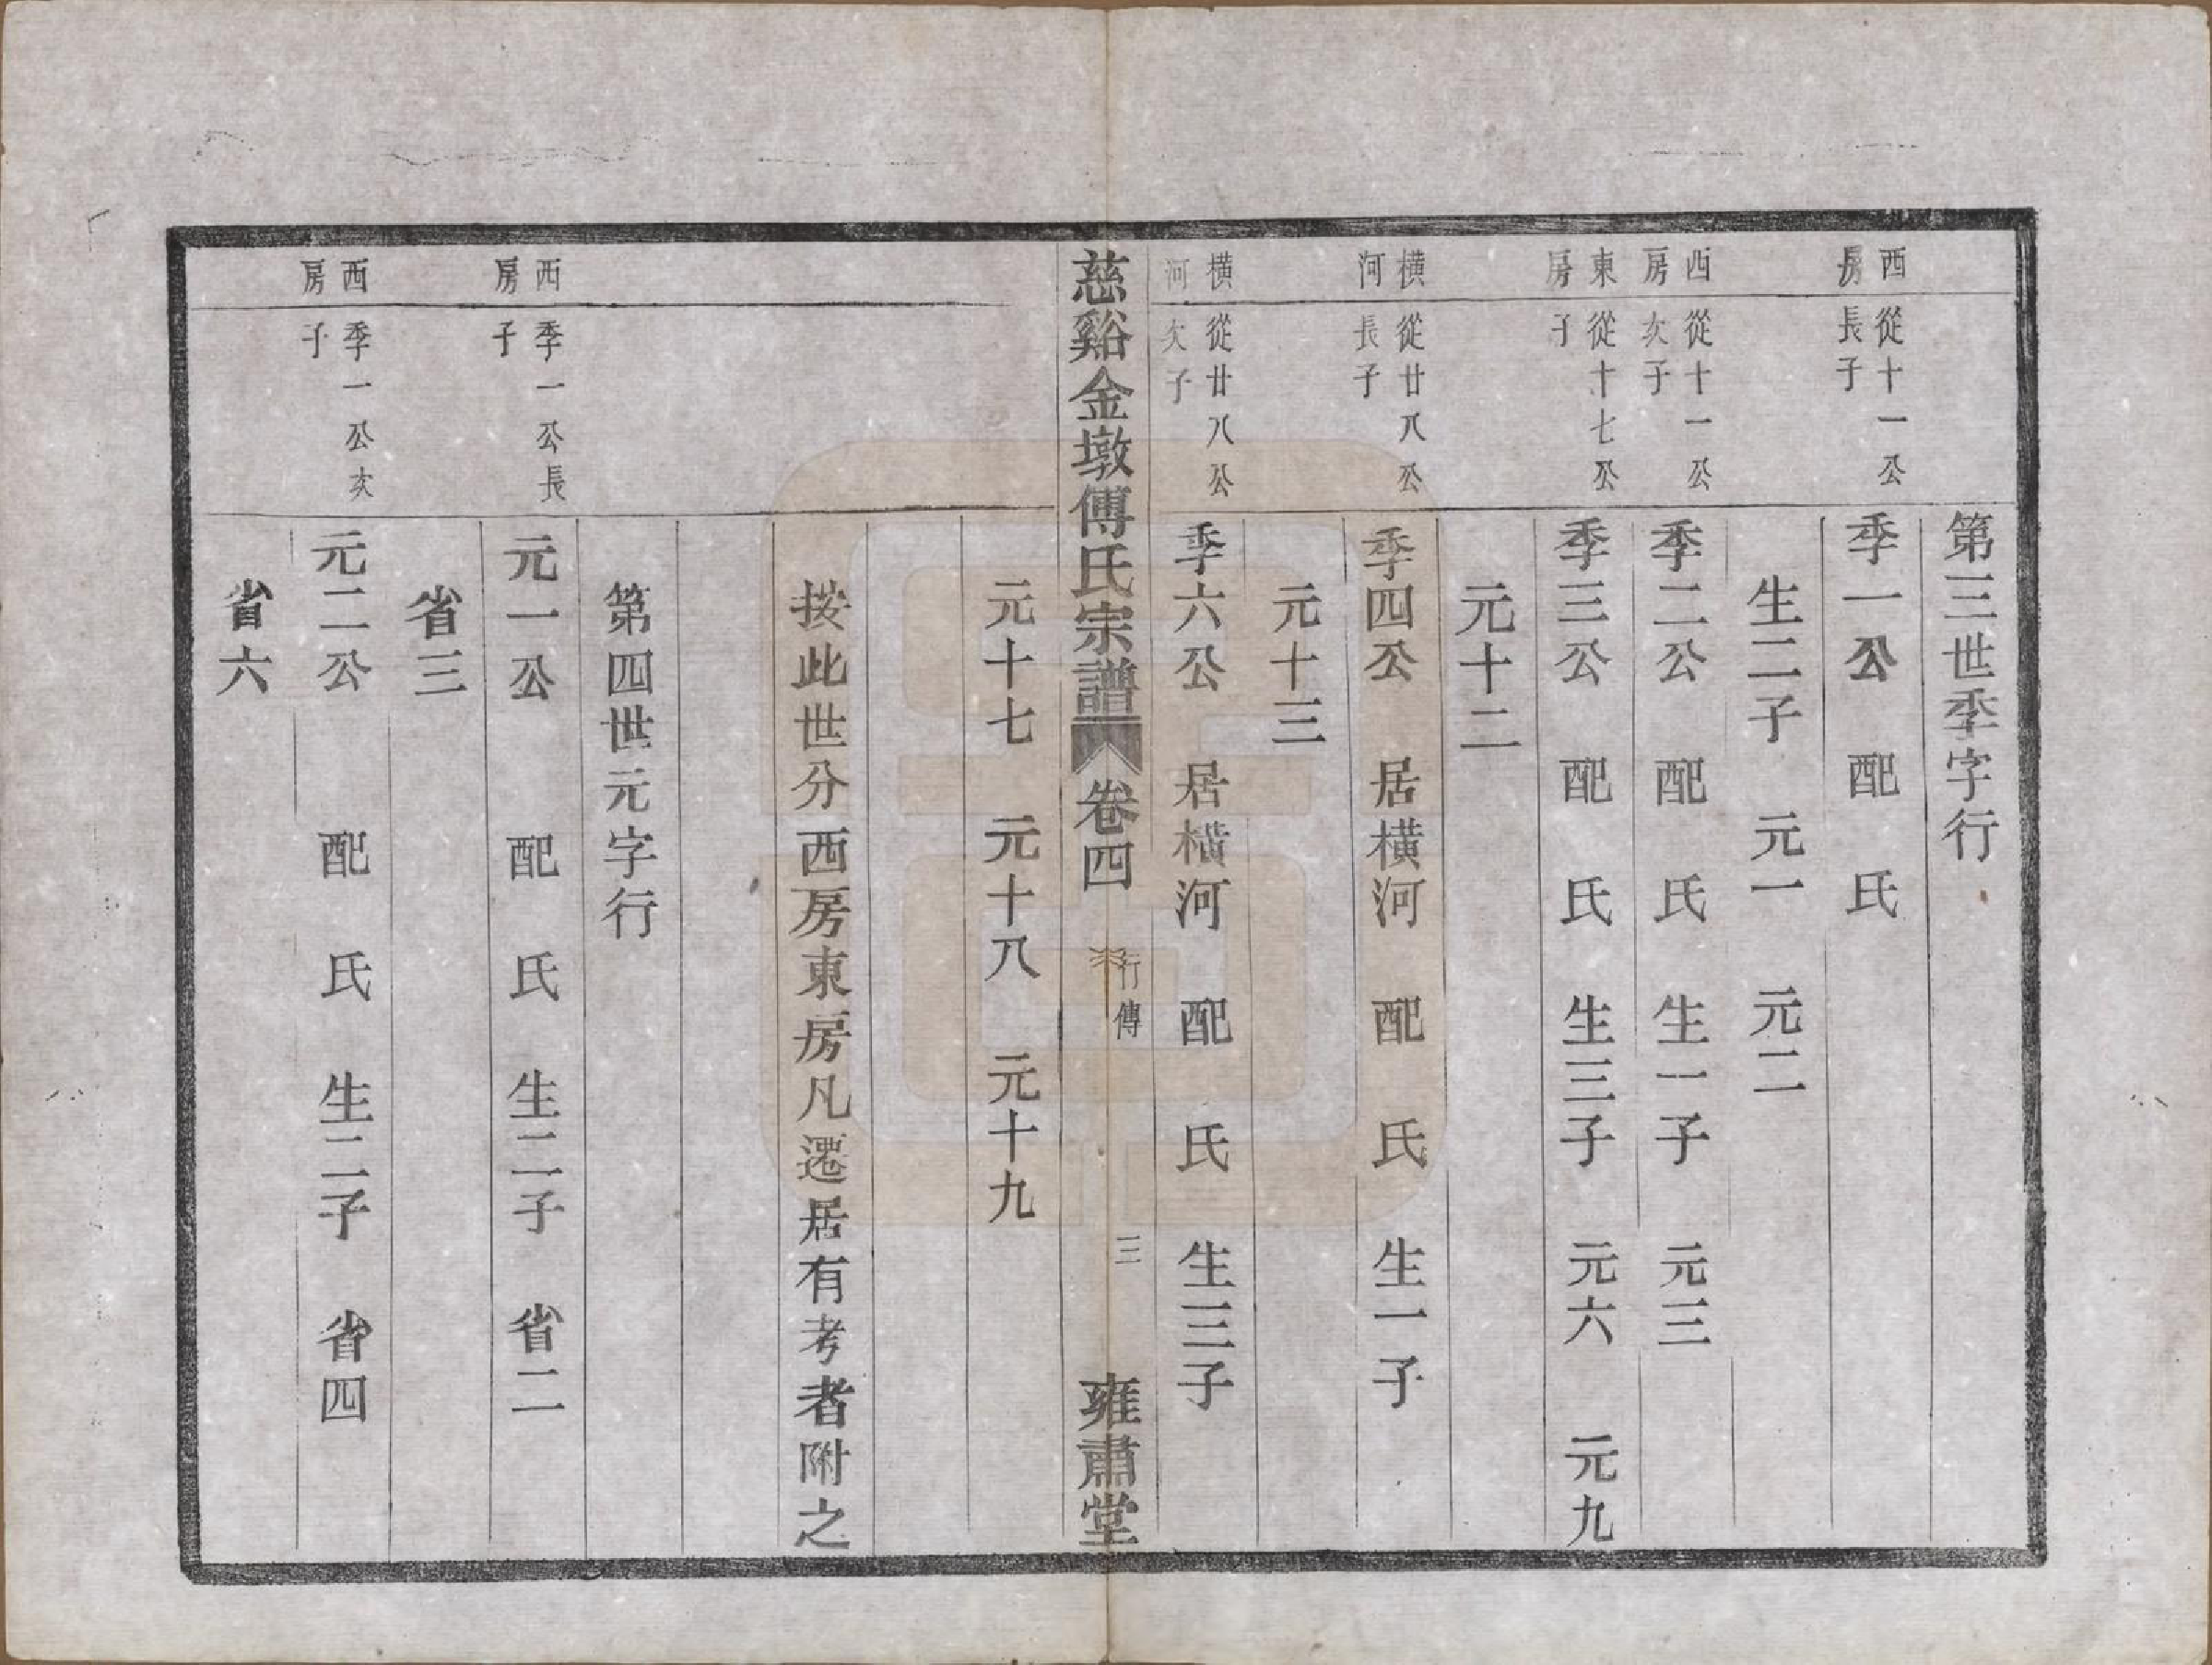 第三世季字行
西房
從十一公長子
季一公　配　氏
生二子　元一　元二
西房
從十一公次子
季二公　配　氏　生一子　元三
東房
從十七公子
季三公　配　氏　生三子　元六　元九
元十二
橫河
從廿八公長子
季四公　居橫河　配　氏　生一子
元十三
橫河
從廿八公次子
季六公　居橫河　配　氏　生三子
慈谿金墩傅氏宗譜　卷四　行傳　三　雍肅堂
元十七　元十八　元十九
按此世分西房東房凡遷居有考者附之
第四世元字行
西房
季一公長子
元一公　配　氏　生二子　省二
省三
西房
季一公次子
元二公　配　氏　生二子　省四
省六